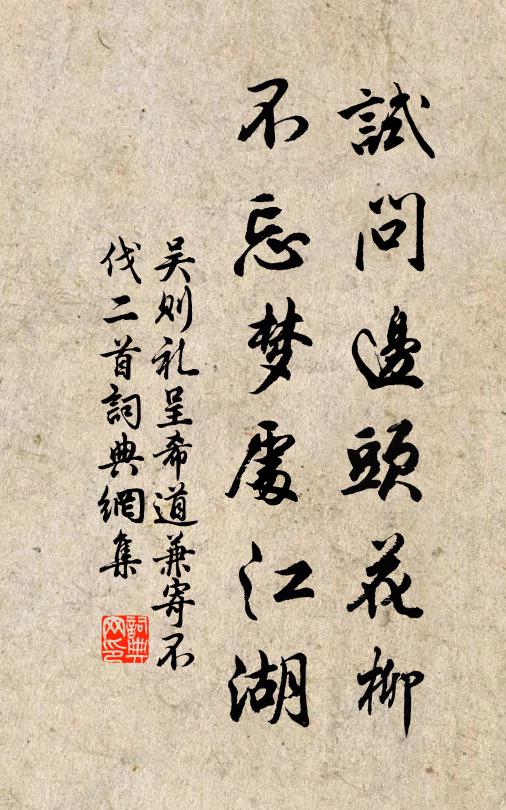 試問邊頭花柳
不忘梦處江湖
吴则礼呈希道兼寄不
伐二首詞典網集
詞典
网印